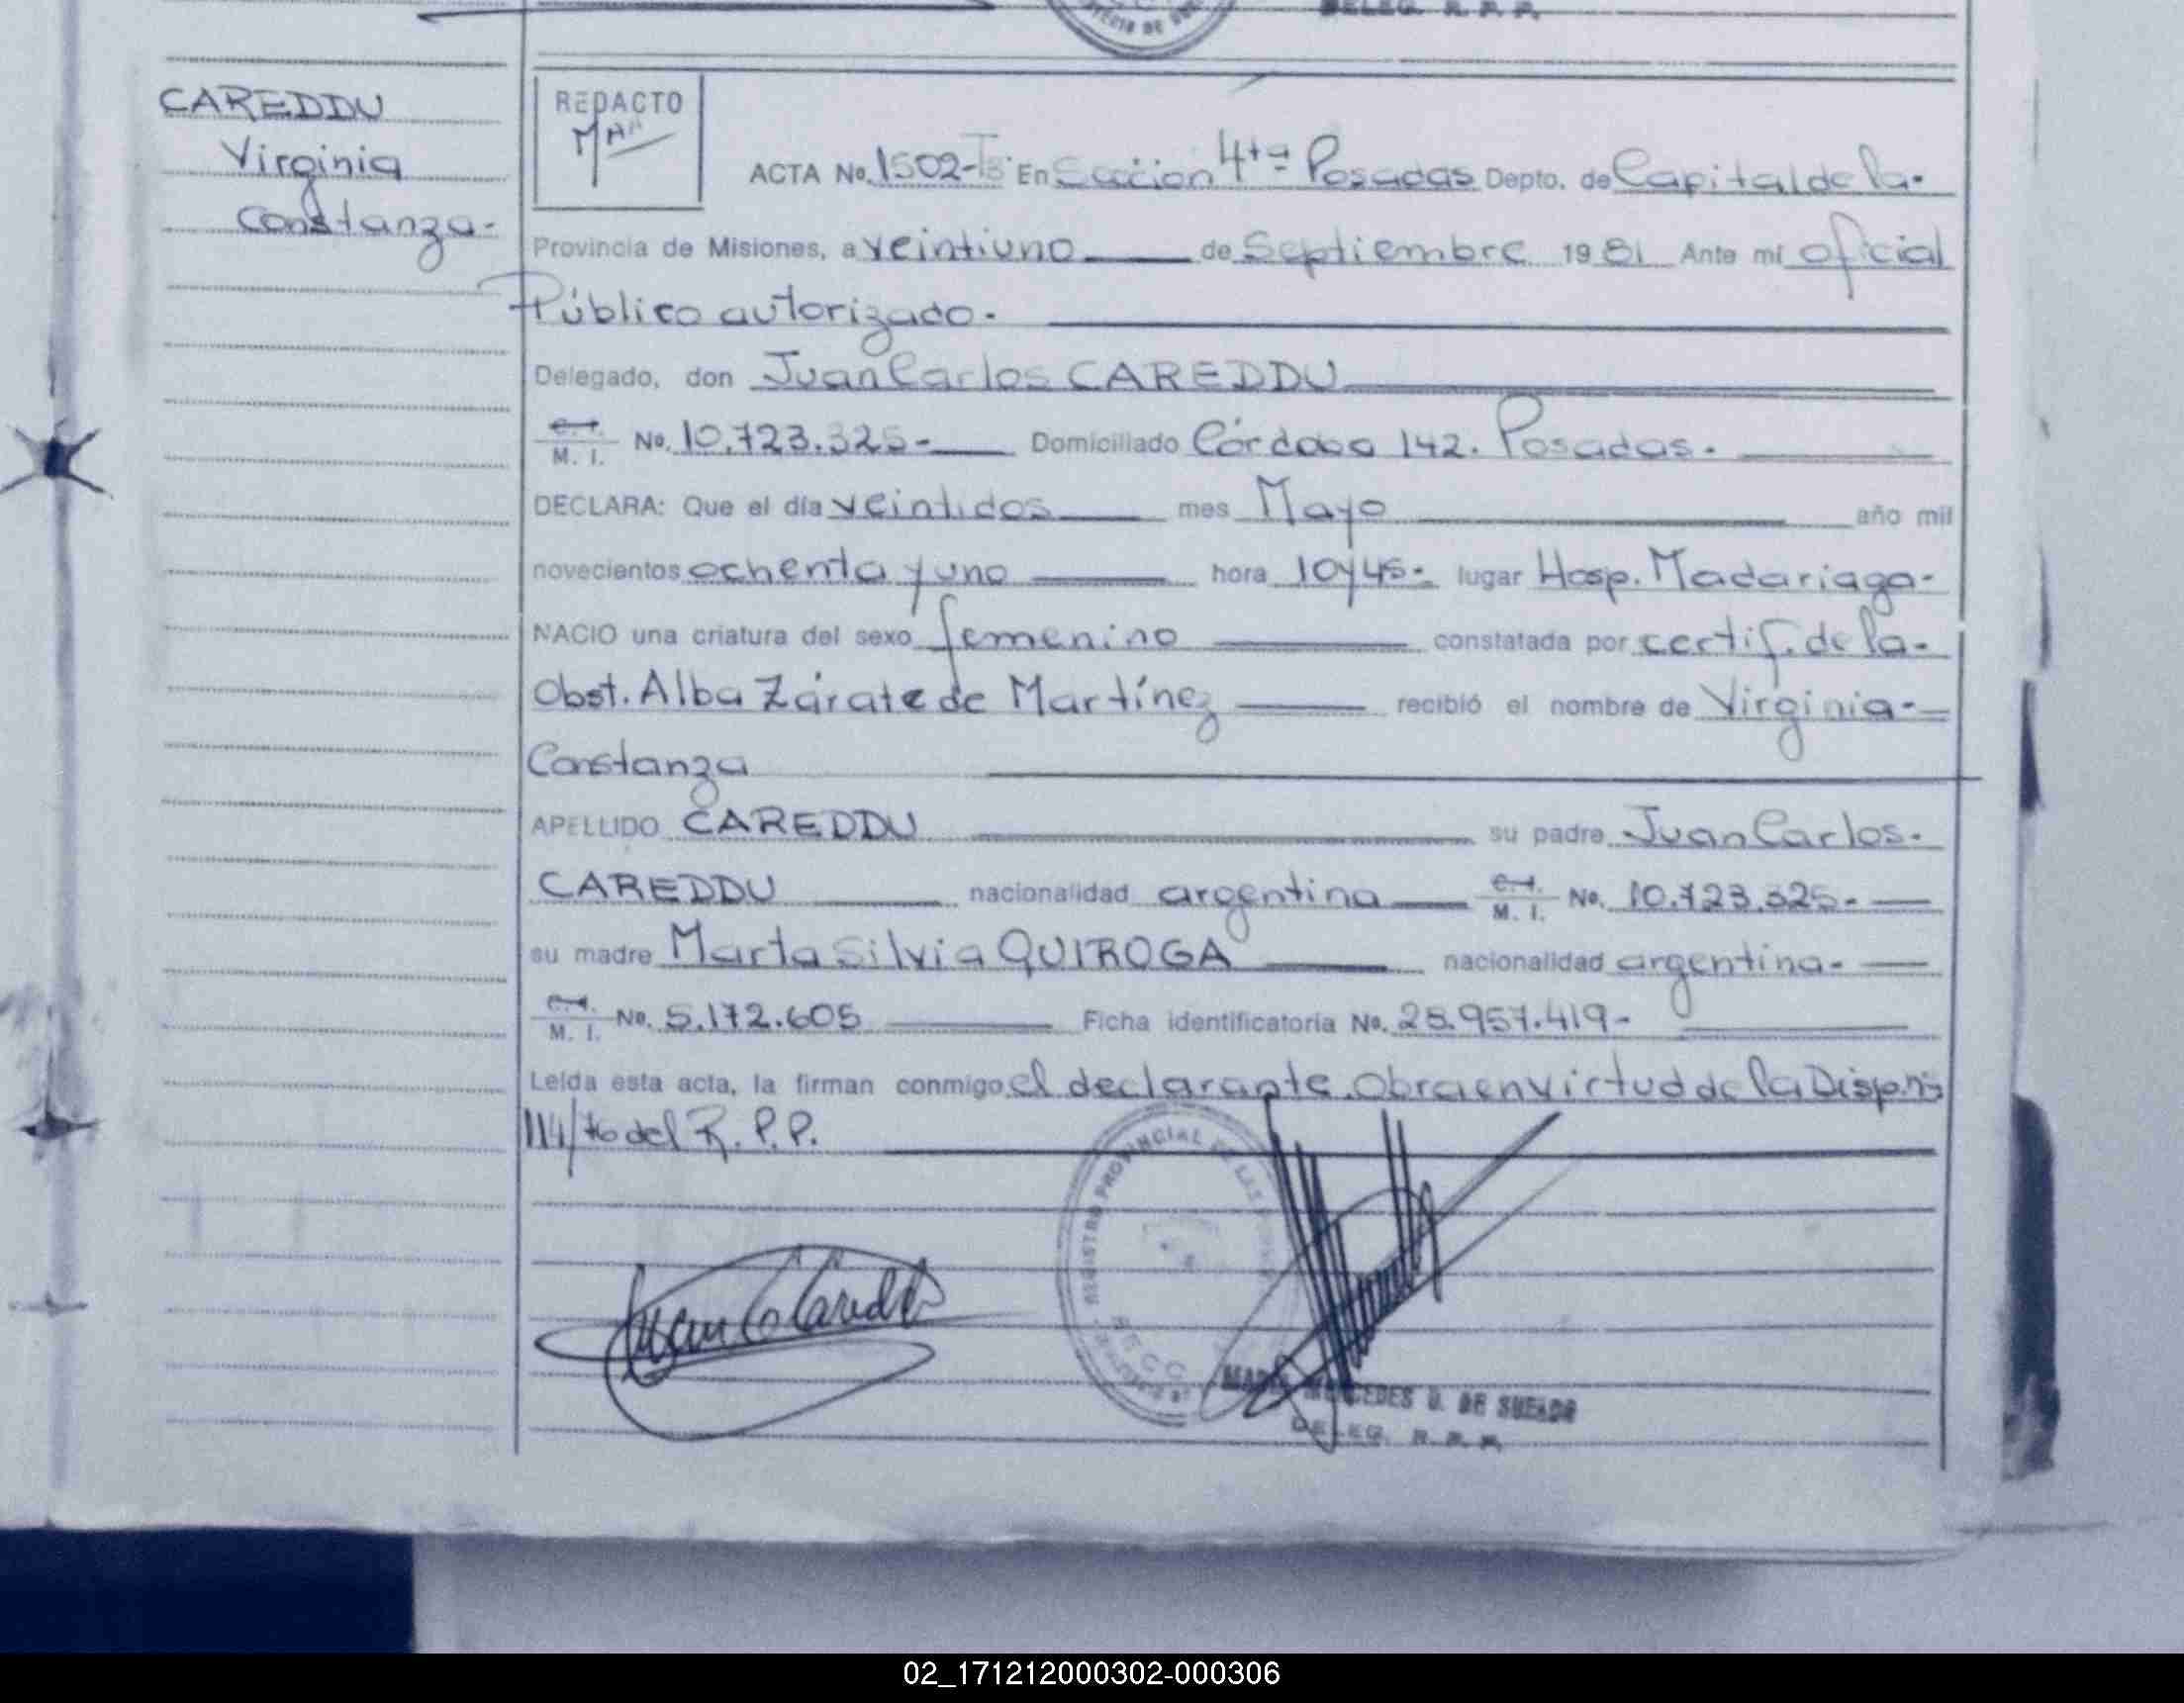 DELEG. R. P. P.
CAREDDU
Virginia
Constanza-
REDACTO
ACTA No. 1502-Tº En Sección 4ta Posadas Depto. de Capital de la-
Provincia de Misiones, a veintiuno de Septiembre 1981 Ante mí oficial
Público autorizado.
Delegado, don Juan Carlos CAREDDU
C. I.
M. I. No. 10.723.325- Domiciliado Córdoba 142. Posadas.
DECLARA: Que el día veintidos mes Mayo año mil
novecientos ochenta y uno hora 10y45- lugar Hosp. Madariaga-
NACIO una criatura del sexo femenino constatada por certif. de la-
Obst. Alba Zárate de Martínez recibió el nombre de Virginia-
Constanza
APELLIDO CAREDDU su padre Juan Carlos.
CAREDDU nacionalidad argentina C. I.
M. I. No. 10.723.325-
su madre Marta Silvia QUIROGA nacionalidad argentina-
C. I.
M. I. No. 5.172.605 Ficha identificatoria No. 28.957.419-
Leída esta acta, la firman conmigo el declarante. Obra en virtud de la Disp. nº
114/76 del R. P. P.
REGISTRO PROVINCIAL DE LAS
MARIA MERCEDES DE
DELEG. R. P. P.
02_171212000302-000306